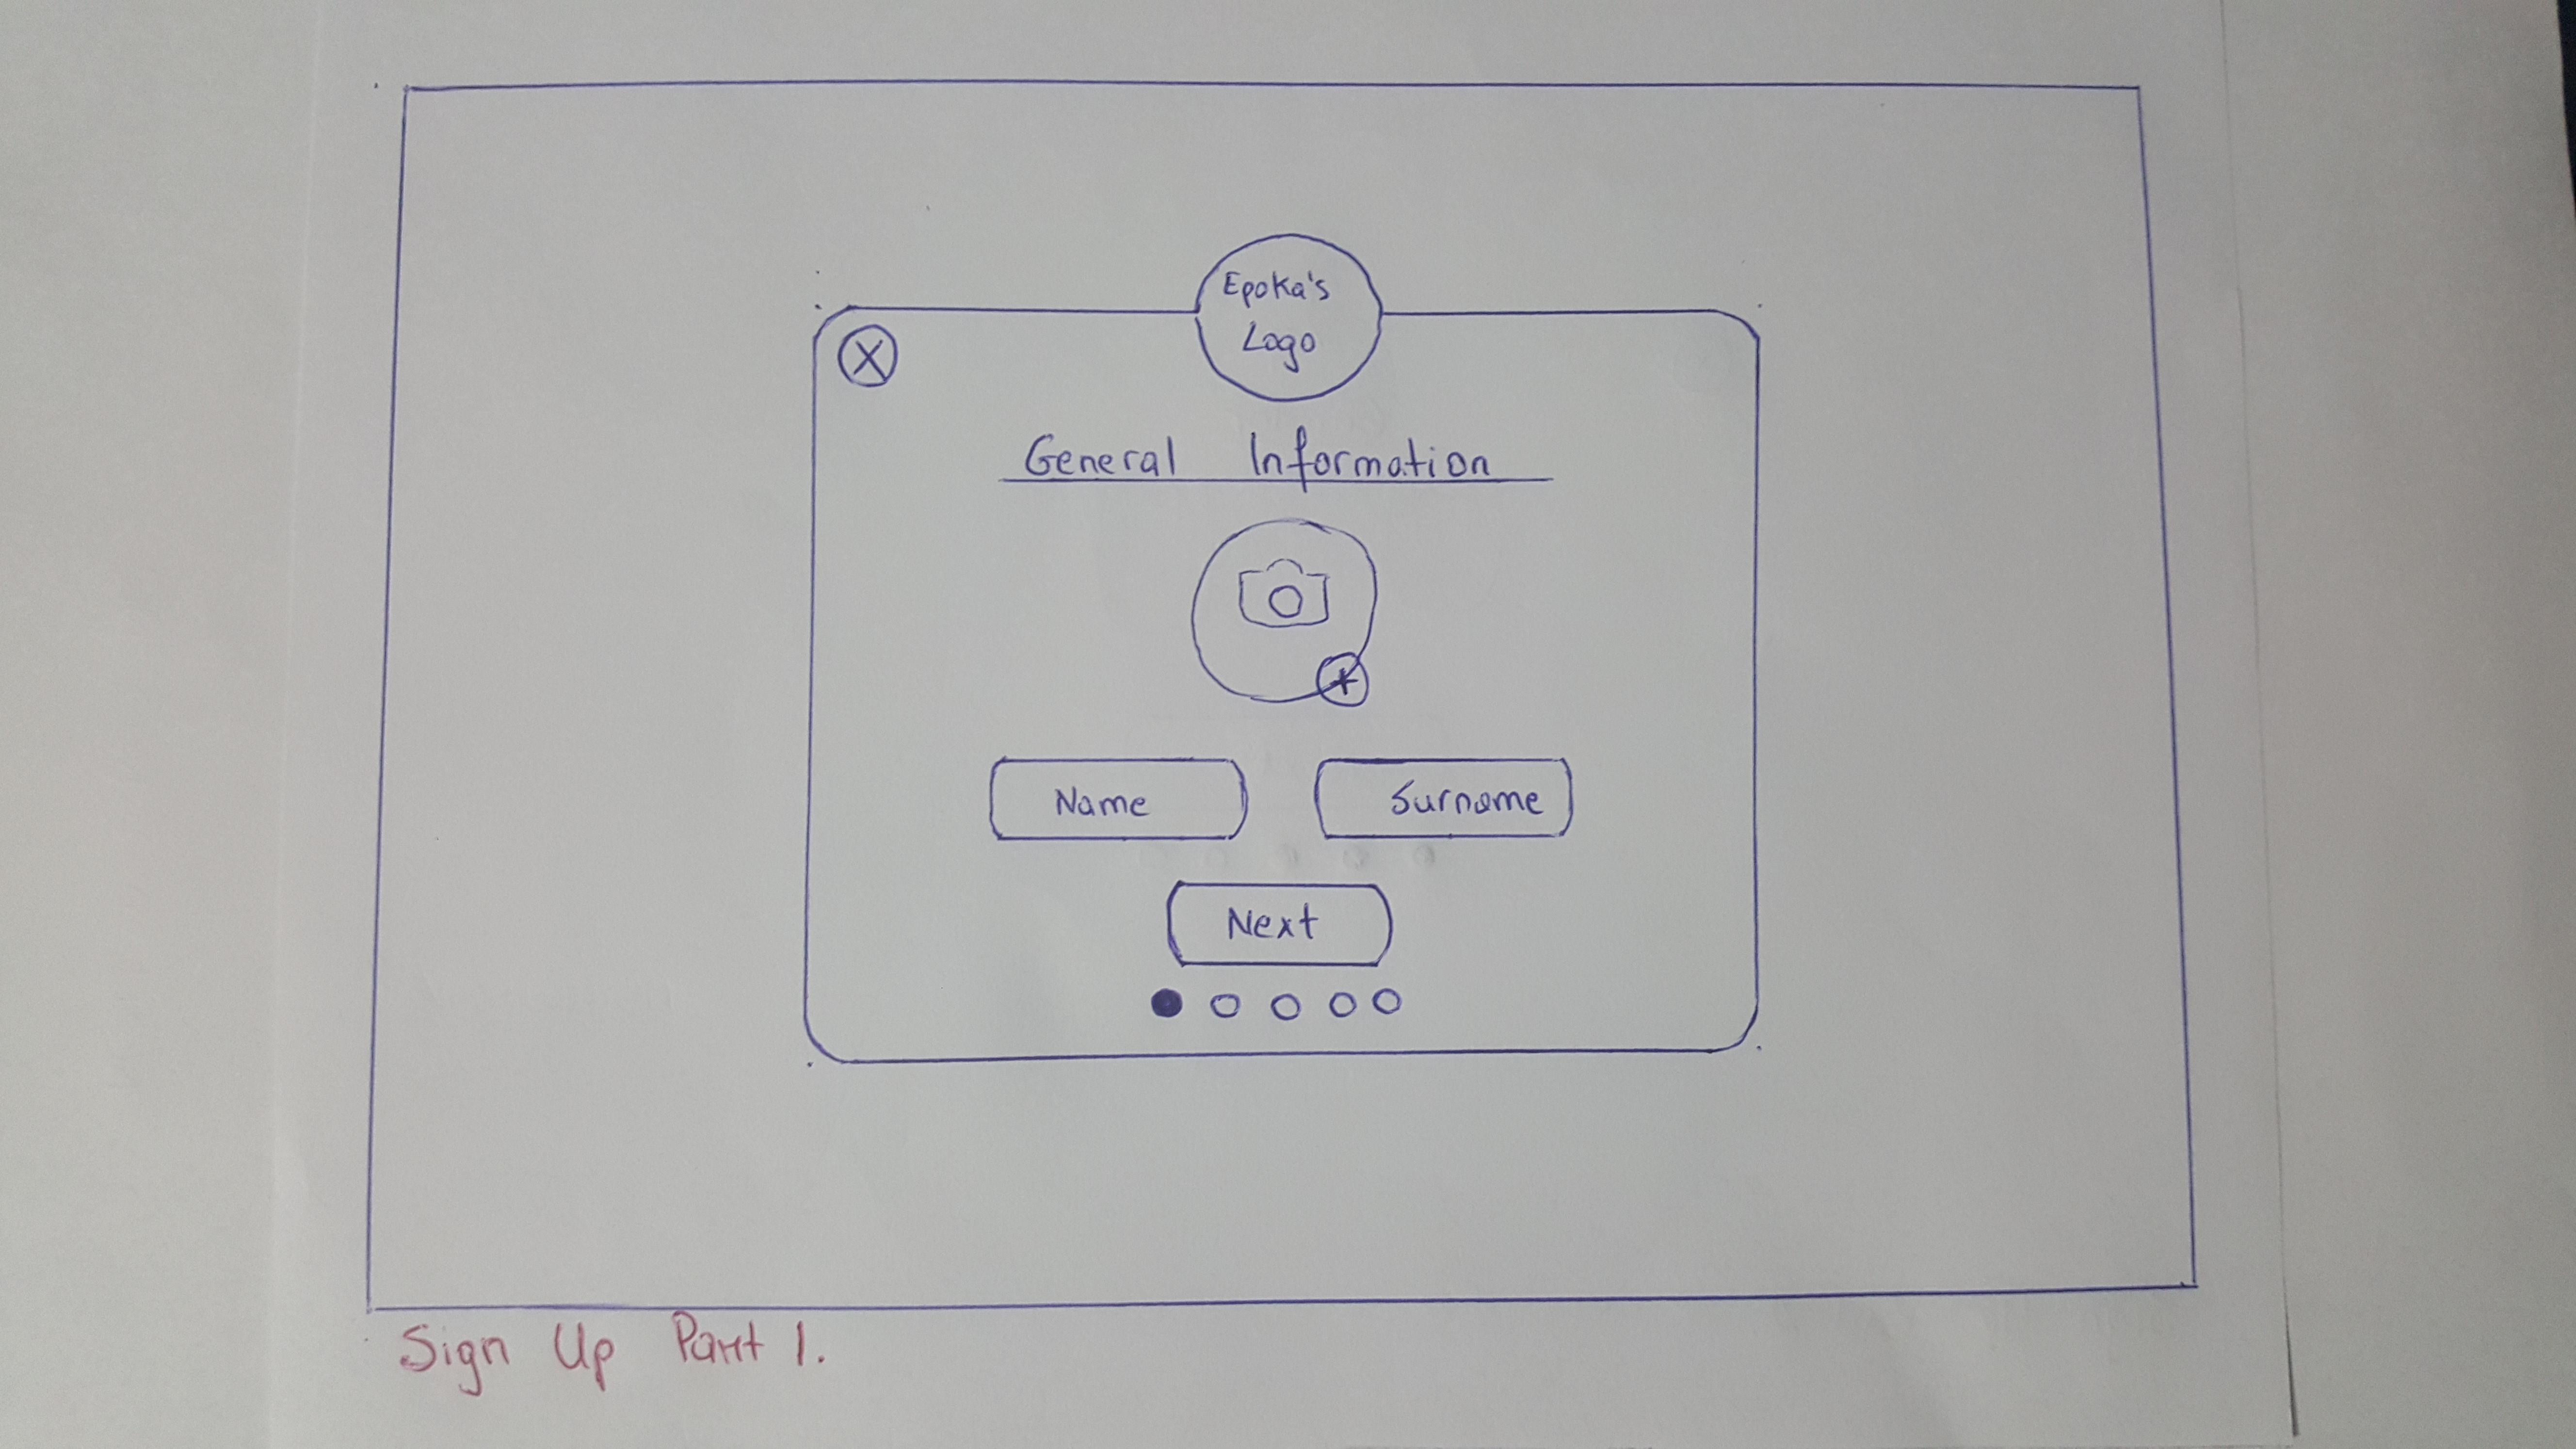 Epoka's
Logo
X
General Information
+
Name
Surname
Next
Sign Up Part 1.